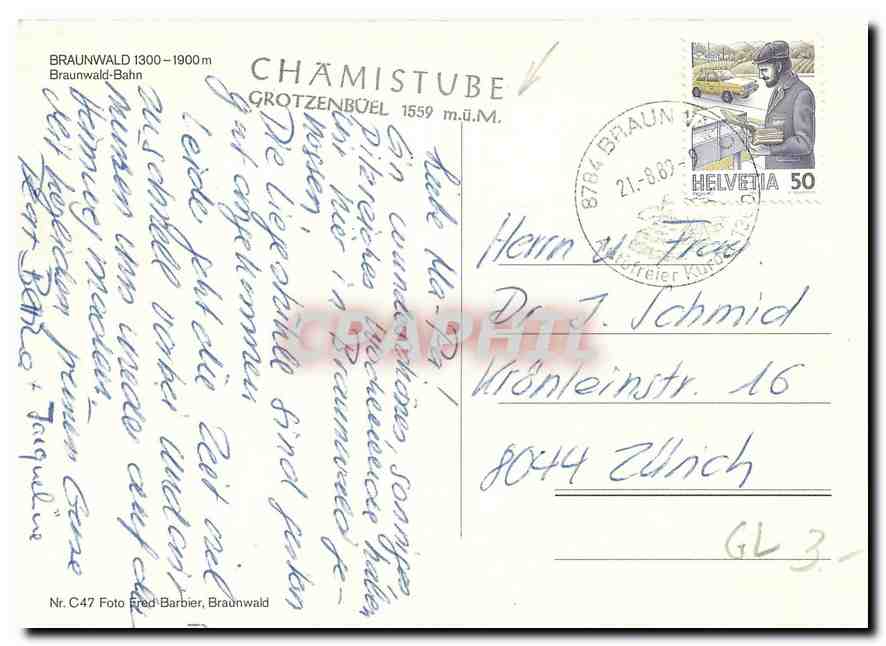 BRAUNWALD 1300–1900 m
Braunwald-Bahn
CHÄMISTUBE
GROTZENBÜEL 1559 m.ü.M.
HELVETIA 50
8784 BRAUNW
21.-8.89-
Autofreier Kurort
Liebe Ma-Pa!
Ein wunderschönes, sonniges
Pilzreiches Wochenende haben
wir hier in Braunwald ge-
nossen.
Die Liegestühle sind gestern
gut angekommen
Leider geht die Zeit viel
zu schnell vorbei und wir
müssen uns wieder auf den
Heimweg machen.
Mit herzlichen Grüsse
+ Jacqueline
Herrn u. Frau
Dr. J. Schmid
Krönleinstr. 16
8044 Zürich
GL 3.-
Nr. C47 Foto Fred Barbier, Braunwald
CPAPHIL